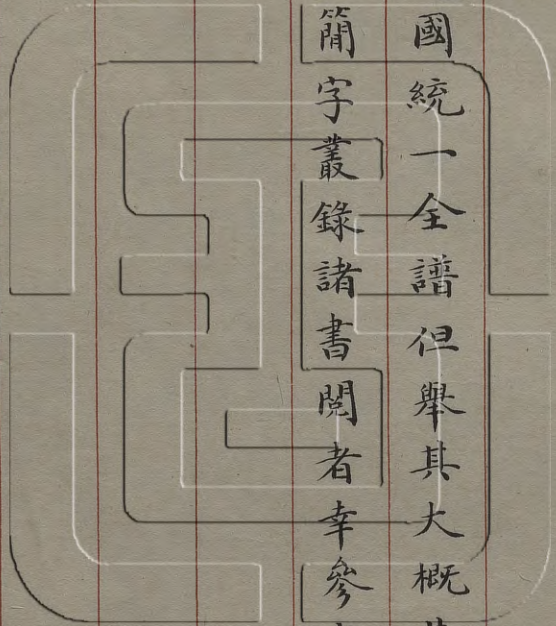 國統一全譜但舉其大概
簡字叢錄諸書閱者幸參